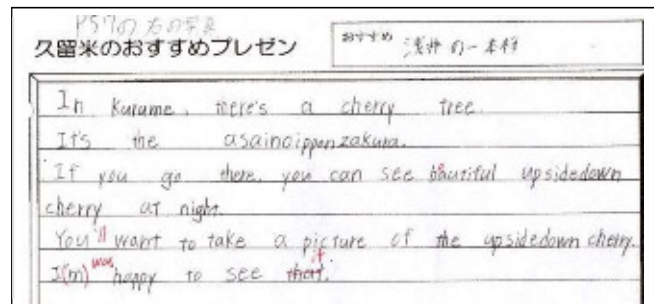 P57の右の写真
久留米のおすすめプレゼン
おすすめ 浅井の一本桜
In Kurume, there's a cherry tree.
It's the asainoipponzakura.
If you go there, you can see beautiful upsidedown
cherry at night.
You'll want to take a picture of the upsidedown cherry.
I(m) was happy to see that. it